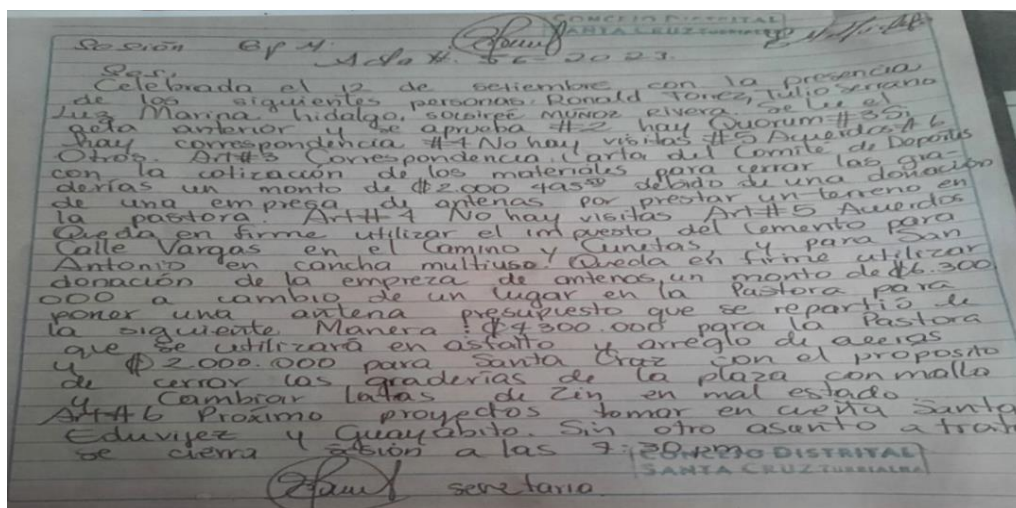 CONCEJO DISTRITAL
SANTA CRUZ TURRIALBA
Sesión 6 p M. Acta #. 2023.
Celebrada el 12 de setiembre con la presencia
de los siguientes personas: Ronald Torrez, Tulio serrano
Luz Marina hidalgo, MUNOZ rivera. Se lee el
acta anterior y se aprueba #2 hay Quorum #3 Si
hay correspondencia #4 No hay visitas #5 Acuerdos #6
Otros. Art#3 Correspondencia. Carta del Comité de Deportes
con la cotización de los materiales para cerrar las gra-
derías un monto de ₡2.000 495 debido de una donación
de una empresa de antenas por prestar un terreno en
la pastora. Art#4 No hay visitas Art#5 Acuerdos
Queda en firme utilizar el impuesto del Cemento para
Calle Vargas en el Camino y Cunetas y para San
Antonio en cancha multiuso. Queda en firme utilizar
donación de la empreza de antenas, un monto de ₡6.300
000 a cambio de un lugar en la Pastora para
poner una antena presupuesto que se repartió de
la siguiente Manera: ₡4300.000 para la Pastora
que se utilizará en asfalto y arreglo de aceras
y ₡2.000.000 para Santa Cruz con el proposito
de cerrar las graderías de la plaza con malla
y Cambiar latas de Zin en mal estado
Art#6 Proximo proyectos tomar en cuenta Santa
Eduvijez y Guayabito. Sin otro asunto a trat
se cierra sesión a las 7:
CONCEJO DISTRITAL
SANTA CRUZ TURRIALBA
secretaria.